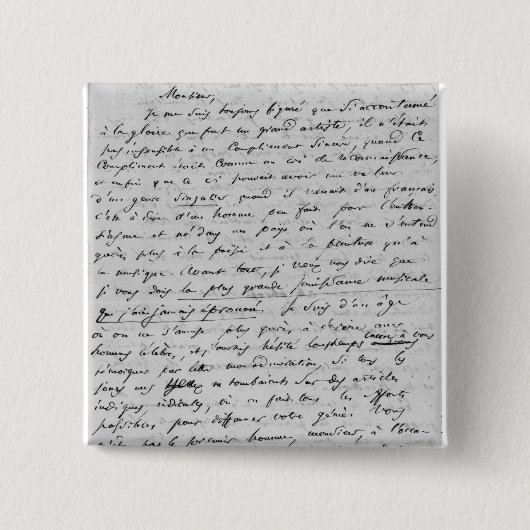 Monsieur,
Je me suis toujours figuré que si accoutumé
à la gloire que fut un grand artiste, il n'était
pas insensible à un compliment sincère, quand ce
compliment était comme un cri de reconnaissance,
et enfin que ce cri pouvait avoir une valeur
d'un genre singulier quand il venait d'un français,
c'est-à-dire d'un homme peu fait pour l'enthou-
siasme et né dans un pays où l'on ne s'entend
guères plus à la poésie et à la peinture qu'à
la musique. Avant tout, je veux vous dire que
je vous dois la plus grande jouissance musicale
que j'aie jamais éprouvée. Je suis d'un âge
où on ne s'amuse plus guères à écrire aux
hommes célèbres, et j'aurais hésité longtemps encore à vous
témoigner par lettre mon admiration, si tous les
jours mes yeux ne tombaient sur des articles
indignes, ridicules, où on fait tous les efforts
possibles pour diffamer votre génie. Vous
n'êtes pas le premier homme, monsieur, à l'occa-